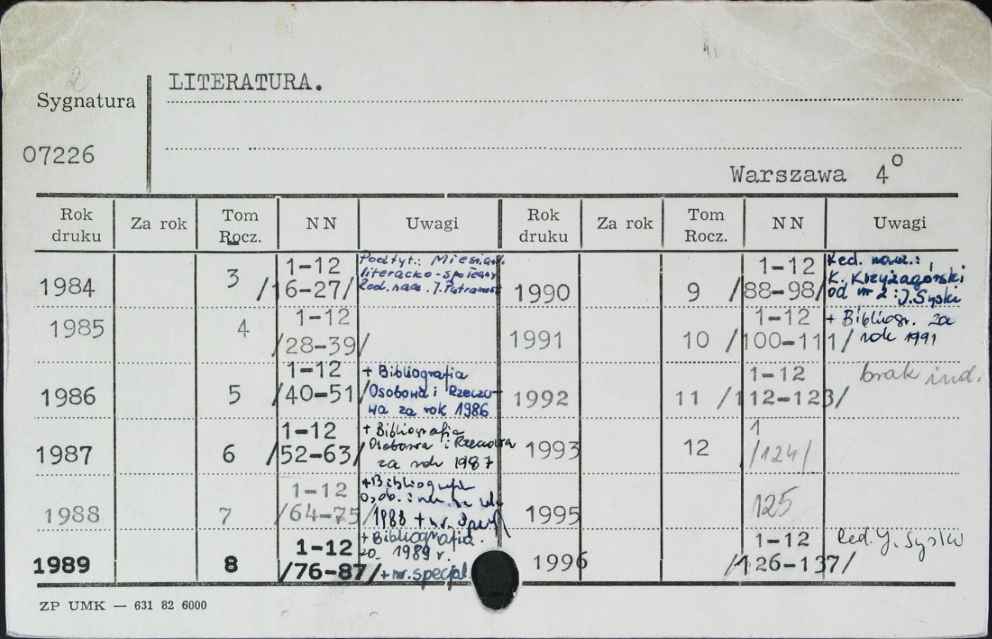 LITERATURA.
Sygnatura
07226
Warszawa 4°
Rok druku Za rok Tom Rocz. NN Uwagi Rok druku Za rok Tom Rocz. NN Uwagi
1984 3 1-12 /16-27/ Podtyt.: literacko-społeczny Red. nacz. J. Putrament
1985 4 1-12 /28-39/
1986 5 1-12 /40-51/ + Bibliografia Osobowa i Rzeczowa za rok 1986
1987 6 1-12 /52-63/ + Bibliografia Osobowa i Rzeczowa za rok 1987
1988 7 1-12 /64-75 + Bibliografia 1988 + nr.
1989 8 1-12 /76-87/ + Bibliografia 1989 r. + nr. specjal.
1990 9 1-12 /88-98/ Red. nacz.: K. Krzyżagórski od nr 2: J. Syski
1991 10 1-12 /100-111/ + Bibliogr. za rok 1991
1992 11 1-12 /112-123/ brak ind.
1993 12 1 /124/
1995 125
1996 1-12 /126-137/ Red. J. Syski
ZP UMK — 631 82 6000